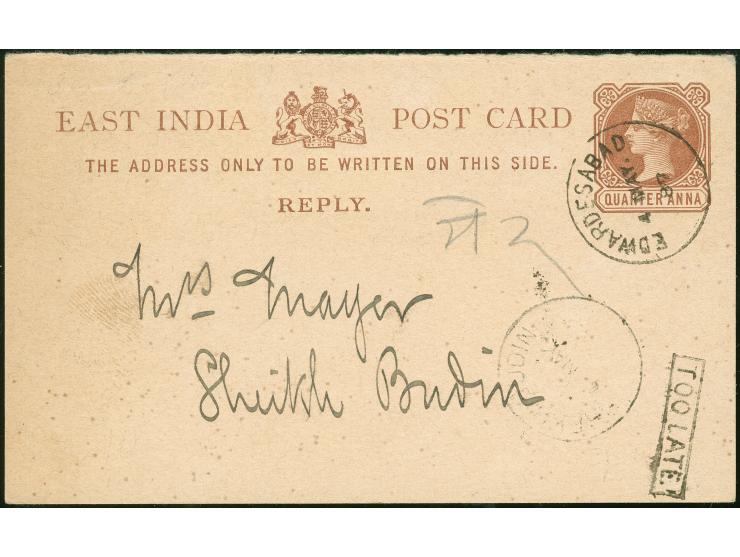 EAST INDIA POST CARD
THE ADDRESS ONLY TO BE WRITTEN ON THIS SIDE.
REPLY.
QUARTER ANNA
EDWARDESABAD
MAY
87
Mrs Mayer
Sheikh Budin
TOO LATE